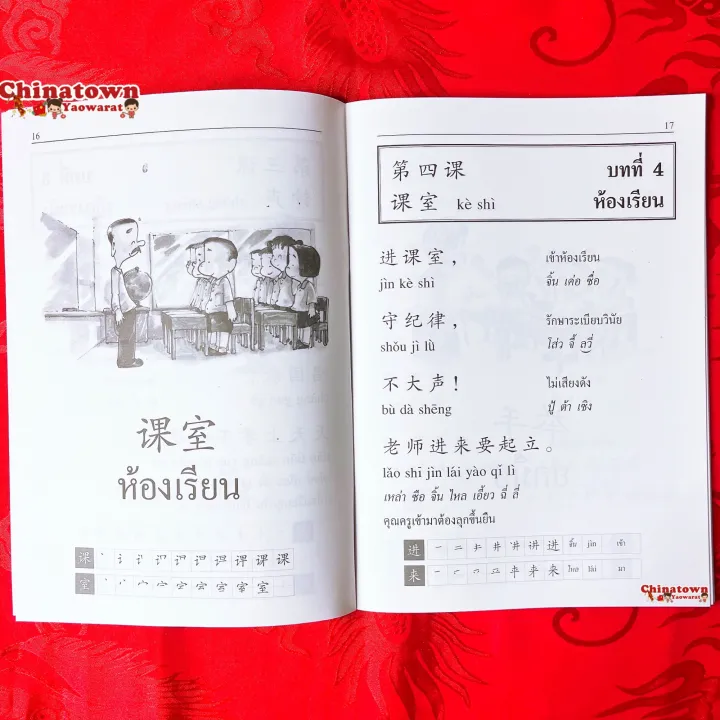 Chinatown
Yaowarat
16
课室
ห้องเรียน
课
课
室
室
17
第四课 บทที่ 4
课室 kè shì ห้องเรียน
进课室， เข้าห้องเรียน
jìn kè shì จิ้น เค่อ ซื่อ
守纪律， รักษาระเบียบวินัย
shǒu jì lǜ โส่ว จี้ ลวี่
不大声！ ไม่เสียงดัง
bù dà shēng ปู๋ ต้า เซิง
老师进来要起立。
lǎo shī jìn lái yào qǐ lì
เหล่า ซือ จิ้น ไหล เอี้ยว ฉี่ ลี่
คุณครูเข้ามาต้องลุกขึ้นยืน
进 一 二 井 进 จิ้น jìn เข้า
来 一 来 ไหล lái มา
Chinatown
Yaowarat